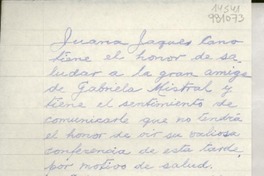 14541
931073
Juana Jaques Cano
tiene el honor de sa-
ludar a la gran amiga
de Gabriela Mistral y
tiene el sentimiento de
comunicarle que no tendrá
el honor de oir su valiosa
conferencia de esta tarde,
por motivo de salud.